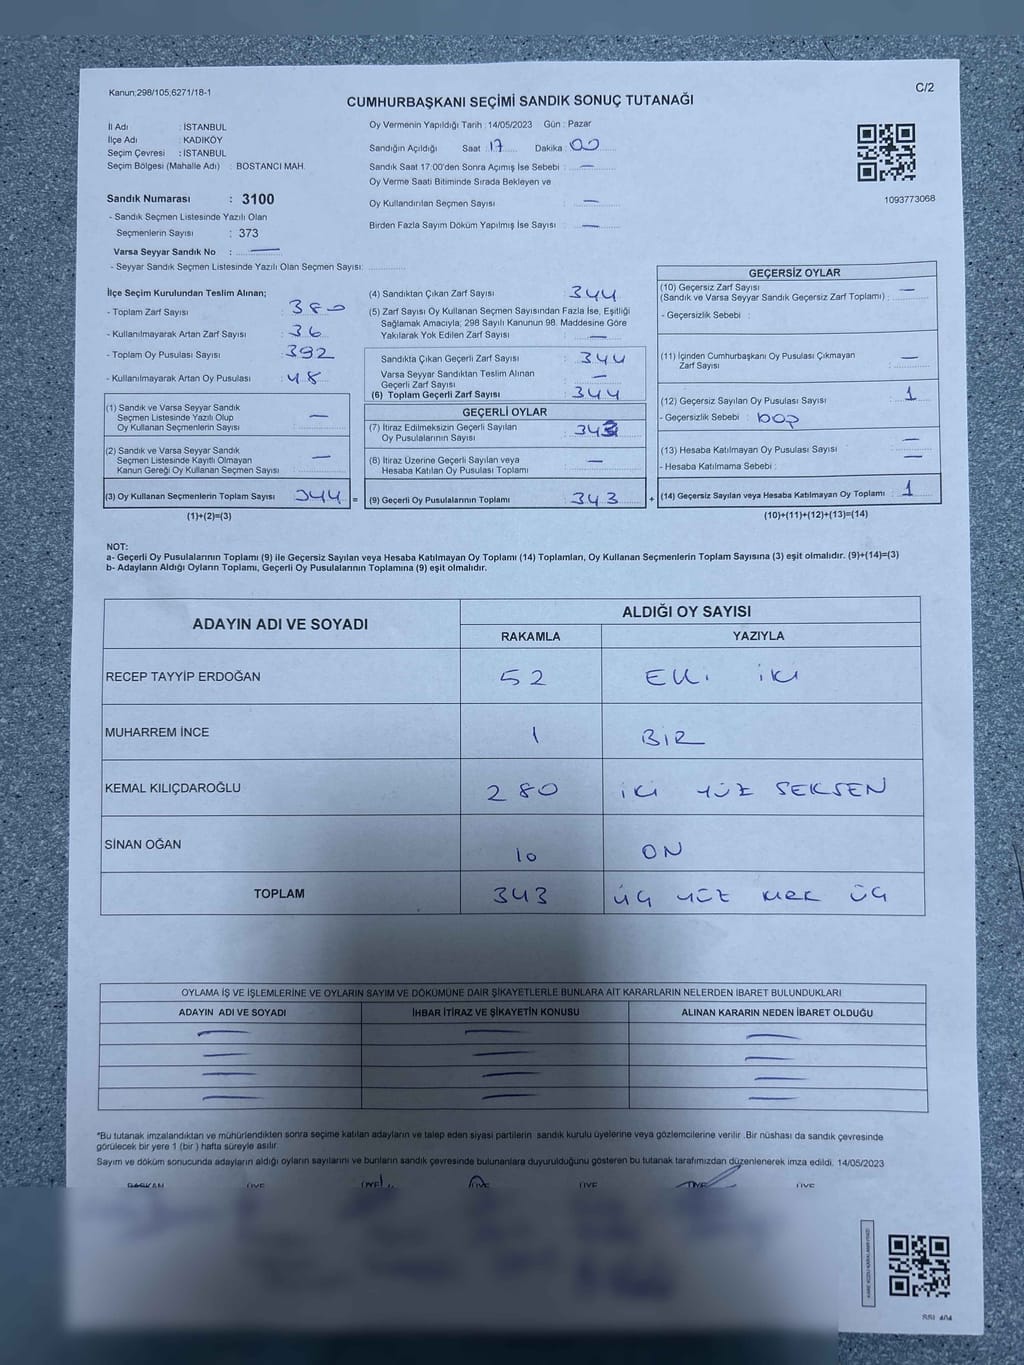 Kanun;298/105,6271/18-1
C/2
CUMHURBAŞKANI SEÇİMİ SANDIK SONUÇ TUTANAĞI
İl Adı : İSTANBUL
İlçe Adı : KADIKÖY
Seçim Çevresi : İSTANBUL
Seçim Bölgesi (Mahalle Adı) : BOSTANCI MAH.
Sandık Numarası : 3100
- Sandık Seçmen Listesinde Yazılı Olan
Seçmenlerin Sayısı : 373
Varsa Seyyar Sandık No : —
- Seyyar Sandık Seçmen Listesinde Yazılı Olan Seçmen Sayısı:
Oy Vermenin Yapıldığı Tarih : 14/05/2023 Gün : Pazar
Sandığın Açıldığı Saat : 17 Dakika : 00
Sandık Saat 17:00'den Sonra Açımış İse Sebebi : —
Oy Verme Saati Bitiminde Sırada Bekleyen ve
Oy Kullandırılan Seçmen Sayısı : —
Birden Fazla Sayım Döküm Yapılmış İse Sayısı : —
1093773068
İlçe Seçim Kurulundan Teslim Alınan;
- Toplam Zarf Sayısı : 380
- Kullanılmayarak Artan Zarf Sayısı : 36
- Toplam Oy Pusulası Sayısı : 392
- Kullanılmayarak Artan Oy Pusulası : 48
(1) Sandık ve Varsa Seyyar Sandık
Seçmen Listesinde Yazılı Olup
Oy Kullanan Seçmenlerin Sayısı : —
(2) Sandık ve Varsa Seyyar Sandık
Seçmen Listesinde Kayıtlı Olmayan
Kanun Gereği Oy Kullanan Seçmen Sayısı : —
(3) Oy Kullanan Seçmenlerin Toplam Sayısı : 344 =
(1)+(2)=(3)
(4) Sandıktan Çıkan Zarf Sayısı : 344
(5) Zarf Sayısı Oy Kullanan Seçmen Sayısından Fazla İse, Eşitliği
Sağlamak Amacıyla; 298 Sayılı Kanunun 98. Maddesine Göre
Yakılarak Yok Edilen Zarf Sayısı : —
Sandıkta Çıkan Geçerli Zarf Sayısı : 344
Varsa Seyyar Sandıktan Teslim Alınan
Geçerli Zarf Sayısı : —
(6) Toplam Geçerli Zarf Sayısı : 344
GEÇERLİ OYLAR
(7) İtiraz Edilmeksizin Geçerli Sayılan
Oy Pusulalarının Sayısı : 343
(8) İtiraz Üzerine Geçerli Sayılan veya
Hesaba Katılan Oy Pusulası Toplamı : —
(9) Geçerli Oy Pusulalarının Toplamı : 343 +
GEÇERSİZ OYLAR
(10) Geçersiz Zarf Sayısı
(Sandık ve Varsa Seyyar Sandık Geçersiz Zarf Toplamı) : —
- Geçersizlik Sebebi :
(11) İçinden Cumhurbaşkanı Oy Pusulası Çıkmayan
Zarf Sayısı : —
(12) Geçersiz Sayılan Oy Pusulası Sayısı : 1
- Geçersizlik Sebebi : boş
(13) Hesaba Katılmayan Oy Pusulası Sayısı : —
- Hesaba Katılmama Sebebi : —
(14) Geçersiz Sayılan veya Hesaba Katılmayan Oy Toplamı : 1
(10)+(11)+(12)+(13)=(14)
NOT:
a- Geçerli Oy Pusulalarının Toplamı (9) ile Geçersiz Sayılan veya Hesaba Katılmayan Oy Toplamı (14) Toplamları, Oy Kullanan Seçmenlerin Toplam Sayısına (3) eşit olmalıdır. (9)+(14)=(3)
b- Adayların Aldığı Oyların Toplamı, Geçerli Oy Pusulalarının Toplamına (9) eşit olmalıdır.
ADAYIN ADI VE SOYADI ALDIĞI OY SAYISI
RAKAMLA YAZIYLA
RECEP TAYYİP ERDOĞAN 52 Elli iki
MUHARREM İNCE 1 BİR
KEMAL KILIÇDAROĞLU 280 iki YÜZ SEKSEN
SİNAN OĞAN 10 ON
TOPLAM 343 ÜÇ YÜZ KIRK ÜÇ
OYLAMA İŞ VE İŞLEMLERİNE VE OYLARIN SAYIM VE DÖKÜMÜNE DAİR ŞİKAYETLERLE BUNLARA AİT KARARLARIN NELERDEN İBARET BULUNDUKLARI
ADAYIN ADI VE SOYADI İHBAR İTİRAZ VE ŞİKAYETİN KONUSU ALINAN KARARIN NEDEN İBARET OLDUĞU
— — —
— — —
— — —
— — —
*Bu tutanak imzalandıktan ve mühürlendikten sonra seçime katılan adayların ve talep eden siyasi partilerin sandık kurulu üyelerine veya gözlemcilerine verilir .Bir nüshası da sandık çevresinde
görülecek bir yere 1 (bir ) hafta süreyle asılır.
Sayım ve döküm sonucunda adayların aldığı oyların sayılarını ve bunların sandık çevresinde bulunanlara duyurulduğunu gösteren bu tutanak tarafımızdan düzenlenerek imza edildi. 14/05/2023
BAŞKAN ÜYE ÜYE ÜYE ÜYE ÜYE ÜYE